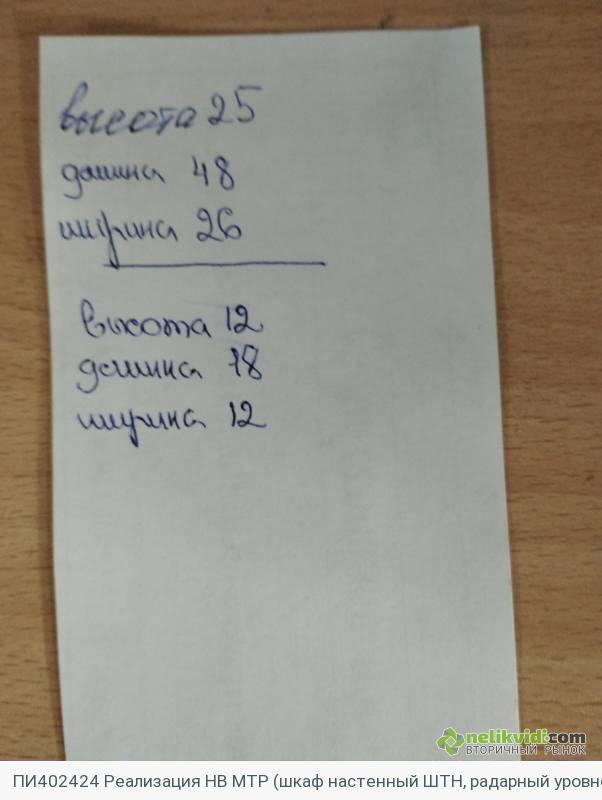 высота 25
длина 48
ширина 26
высота 12
длина 18
ширина 12
nelikvidi.com
ВТОРИЧНЫЙ РЫНОК
ПИ402424 Реализация НВ МТР (шкаф настенный ШТН, радарный уровне